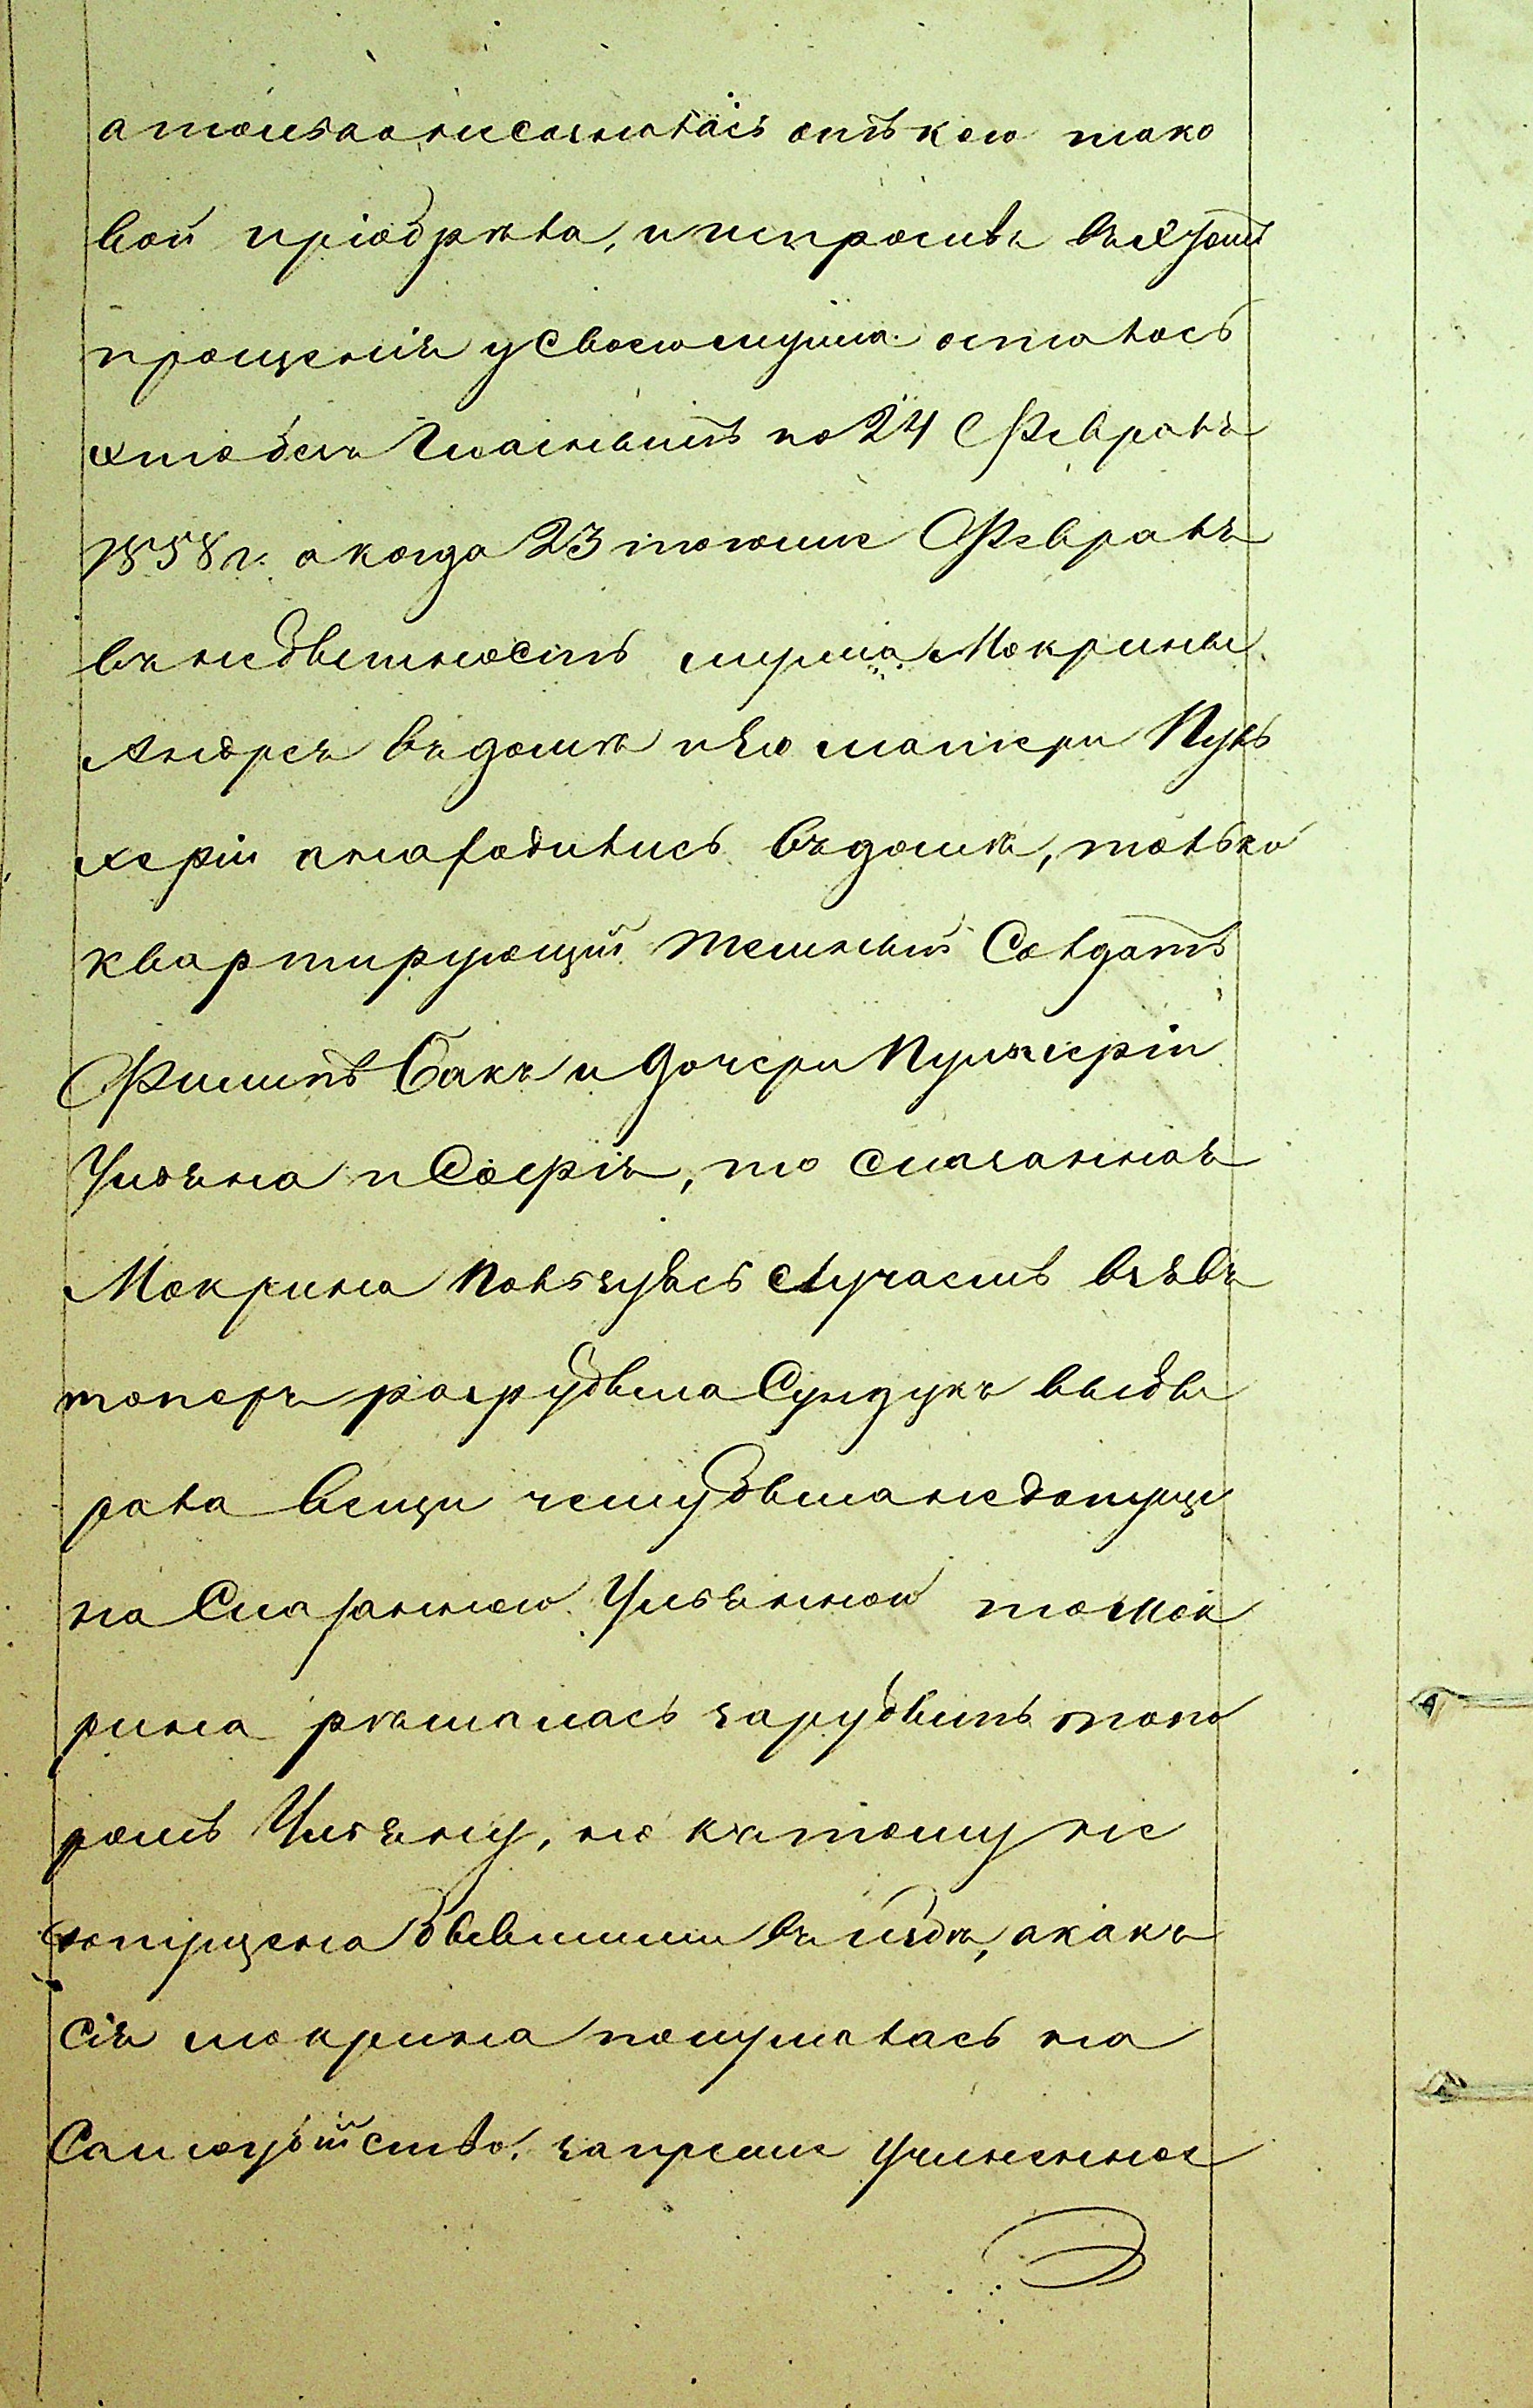 а только несозналась отъ кого тако
вой пріобрѣла, и испросивъ въ этомъ
прощенія у своего мужа осталась
жить по 24 Февраля
1858 г. а когда 23 тогоже Февраля
въ небытность мужа Мокрины
Андрея въ домѣ и его матери Пуль
херіи находились въ домѣ, только
квартирующій Солдатъ
Филипъ Бакъ и дочери Пульхеріи
Ульяна и Софія, то сказанная
Мокрина пользуясь случаемъ взявъ
топоръ разрубила Сундукъ выби
рала вещи чему бывъ недопуще
на Сказанною Ульяною то Мок
рина рѣшилась зарубить топо
ромъ Ульяну, но къ тому не
допущена бывшими въ избѣ, а какъ
сія Мокрина покушалась на
Самоубійство, запрежде учиненное